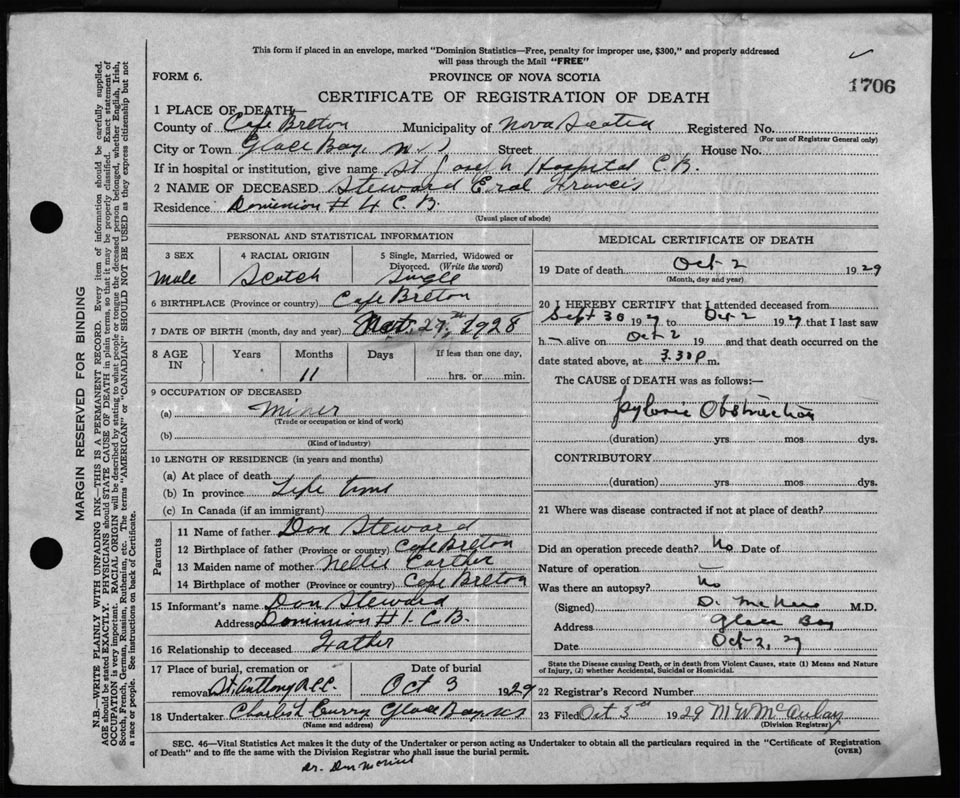 This form if placed in an envelope, marked "Dominion Statistics—Free, penalty for improper use, $300," and properly addressed
will pass through the Mail "FREE"
FORM 6.
PROVINCE OF NOVA SCOTIA
1706
CERTIFICATE OF REGISTRATION OF DEATH
1 PLACE OF DEATH—
County of Cape Breton Municipality of Nova Scotia Registered No.
(For use of Registrar General only)
City or Town Glace Bay N.S Street House No.
If in hospital or institution, give name St Joseph Hospital C.B.
2 NAME OF DECEASED Steward Eral Francis
Residence Dominion # 4 C.B.
(Usual place of abode)
PERSONAL AND STATISTICAL INFORMATION
3 SEX 4 RACIAL ORIGIN 5 Single, Married, Widowed or
Divorced. (Write the word)
male Scotch Single
6 BIRTHPLACE (Province or country) Cape Breton
7 DATE OF BIRTH (month, day and year) 27th, 1928
8 AGE IN Years Months Days If less than one day,
11 hrs. or min.
9 OCCUPATION OF DECEASED
(a) Miner
(Trade or occupation or kind of work)
(b)
(Kind of industry)
10 LENGTH OF RESIDENCE (in years and months)
(a) At place of death
(b) In province Life time
(c) In Canada (if an immigrant)
Parents
11 Name of father Don Steward
12 Birthplace of father (Province or country) Cape Breton
13 Maiden name of mother Nellie
14 Birthplace of mother (Province or country) Cape Breton
15 Informant's name Don Steward
Address Dominion # 1. C.B.
16 Relationship to deceased Father
17 Place of burial, cremation or Date of burial
removal St. Anthony Oct 3 1929
18 Undertaker Charles Curry Glace Bay NS
(Name and address)
MEDICAL CERTIFICATE OF DEATH
19 Date of death Oct 2 1929
(Month, day and year)
20 I HEREBY CERTIFY that I attended deceased from
Sept 30 19 to Oct 2 19 that I last saw
h alive on Oct 2 19 and that death occurred on the
date stated above, at 3.30 P m.
The CAUSE OF DEATH was as follows:—
Pyloric Obstruction
(duration) yrs. mos. dys.
CONTRIBUTORY
(duration) yrs. mos. dys.
21 Where was disease contracted if not at place of death?
Did an operation precede death? No Date of
Nature of operation —
Was there an autopsy? No
(Signed) D. M.D.
Address Glace Bay
Date Oct 2, 29
State the Disease causing Death, or in death from Violent Causes, state (1) Means and Nature
of Injury, (2) whether Accidental, Suicidal or Homicidal.
22 Registrar's Record Number
23 Filed Oct 3rd 1929 M W McAulay
(Division Registrar)
SEC. 46—Vital Statistics Act makes it the duty of the Undertaker or person acting as Undertaker to obtain all the particulars required in the "Certificate of Registration
of Death" and to file the same with the Division Registrar who shall issue the burial permit. (OVER)
MARGIN RESERVED FOR BINDING
N.B.—WRITE PLAINLY WITH UNFADING INK—THIS IS A PERMANENT RECORD. Every item of information should be carefully supplied.
AGE should be stated EXACTLY. PHYSICIANS should STATE CAUSE OF DEATH in plain terms, so that it may be properly classified. Exact statement of
OCCUPATION is very important. RACIAL ORIGIN will be described by stating to what people or tongue the deceased person belonged, whether English, Irish,
Scotch, French, German, Russian, Ruthenian, etc. The terms "AMERICAN" or "CANADIAN" SHOULD NOT BE USED as they express citizenship but not
a race or people. See instructions on back of Certificate.